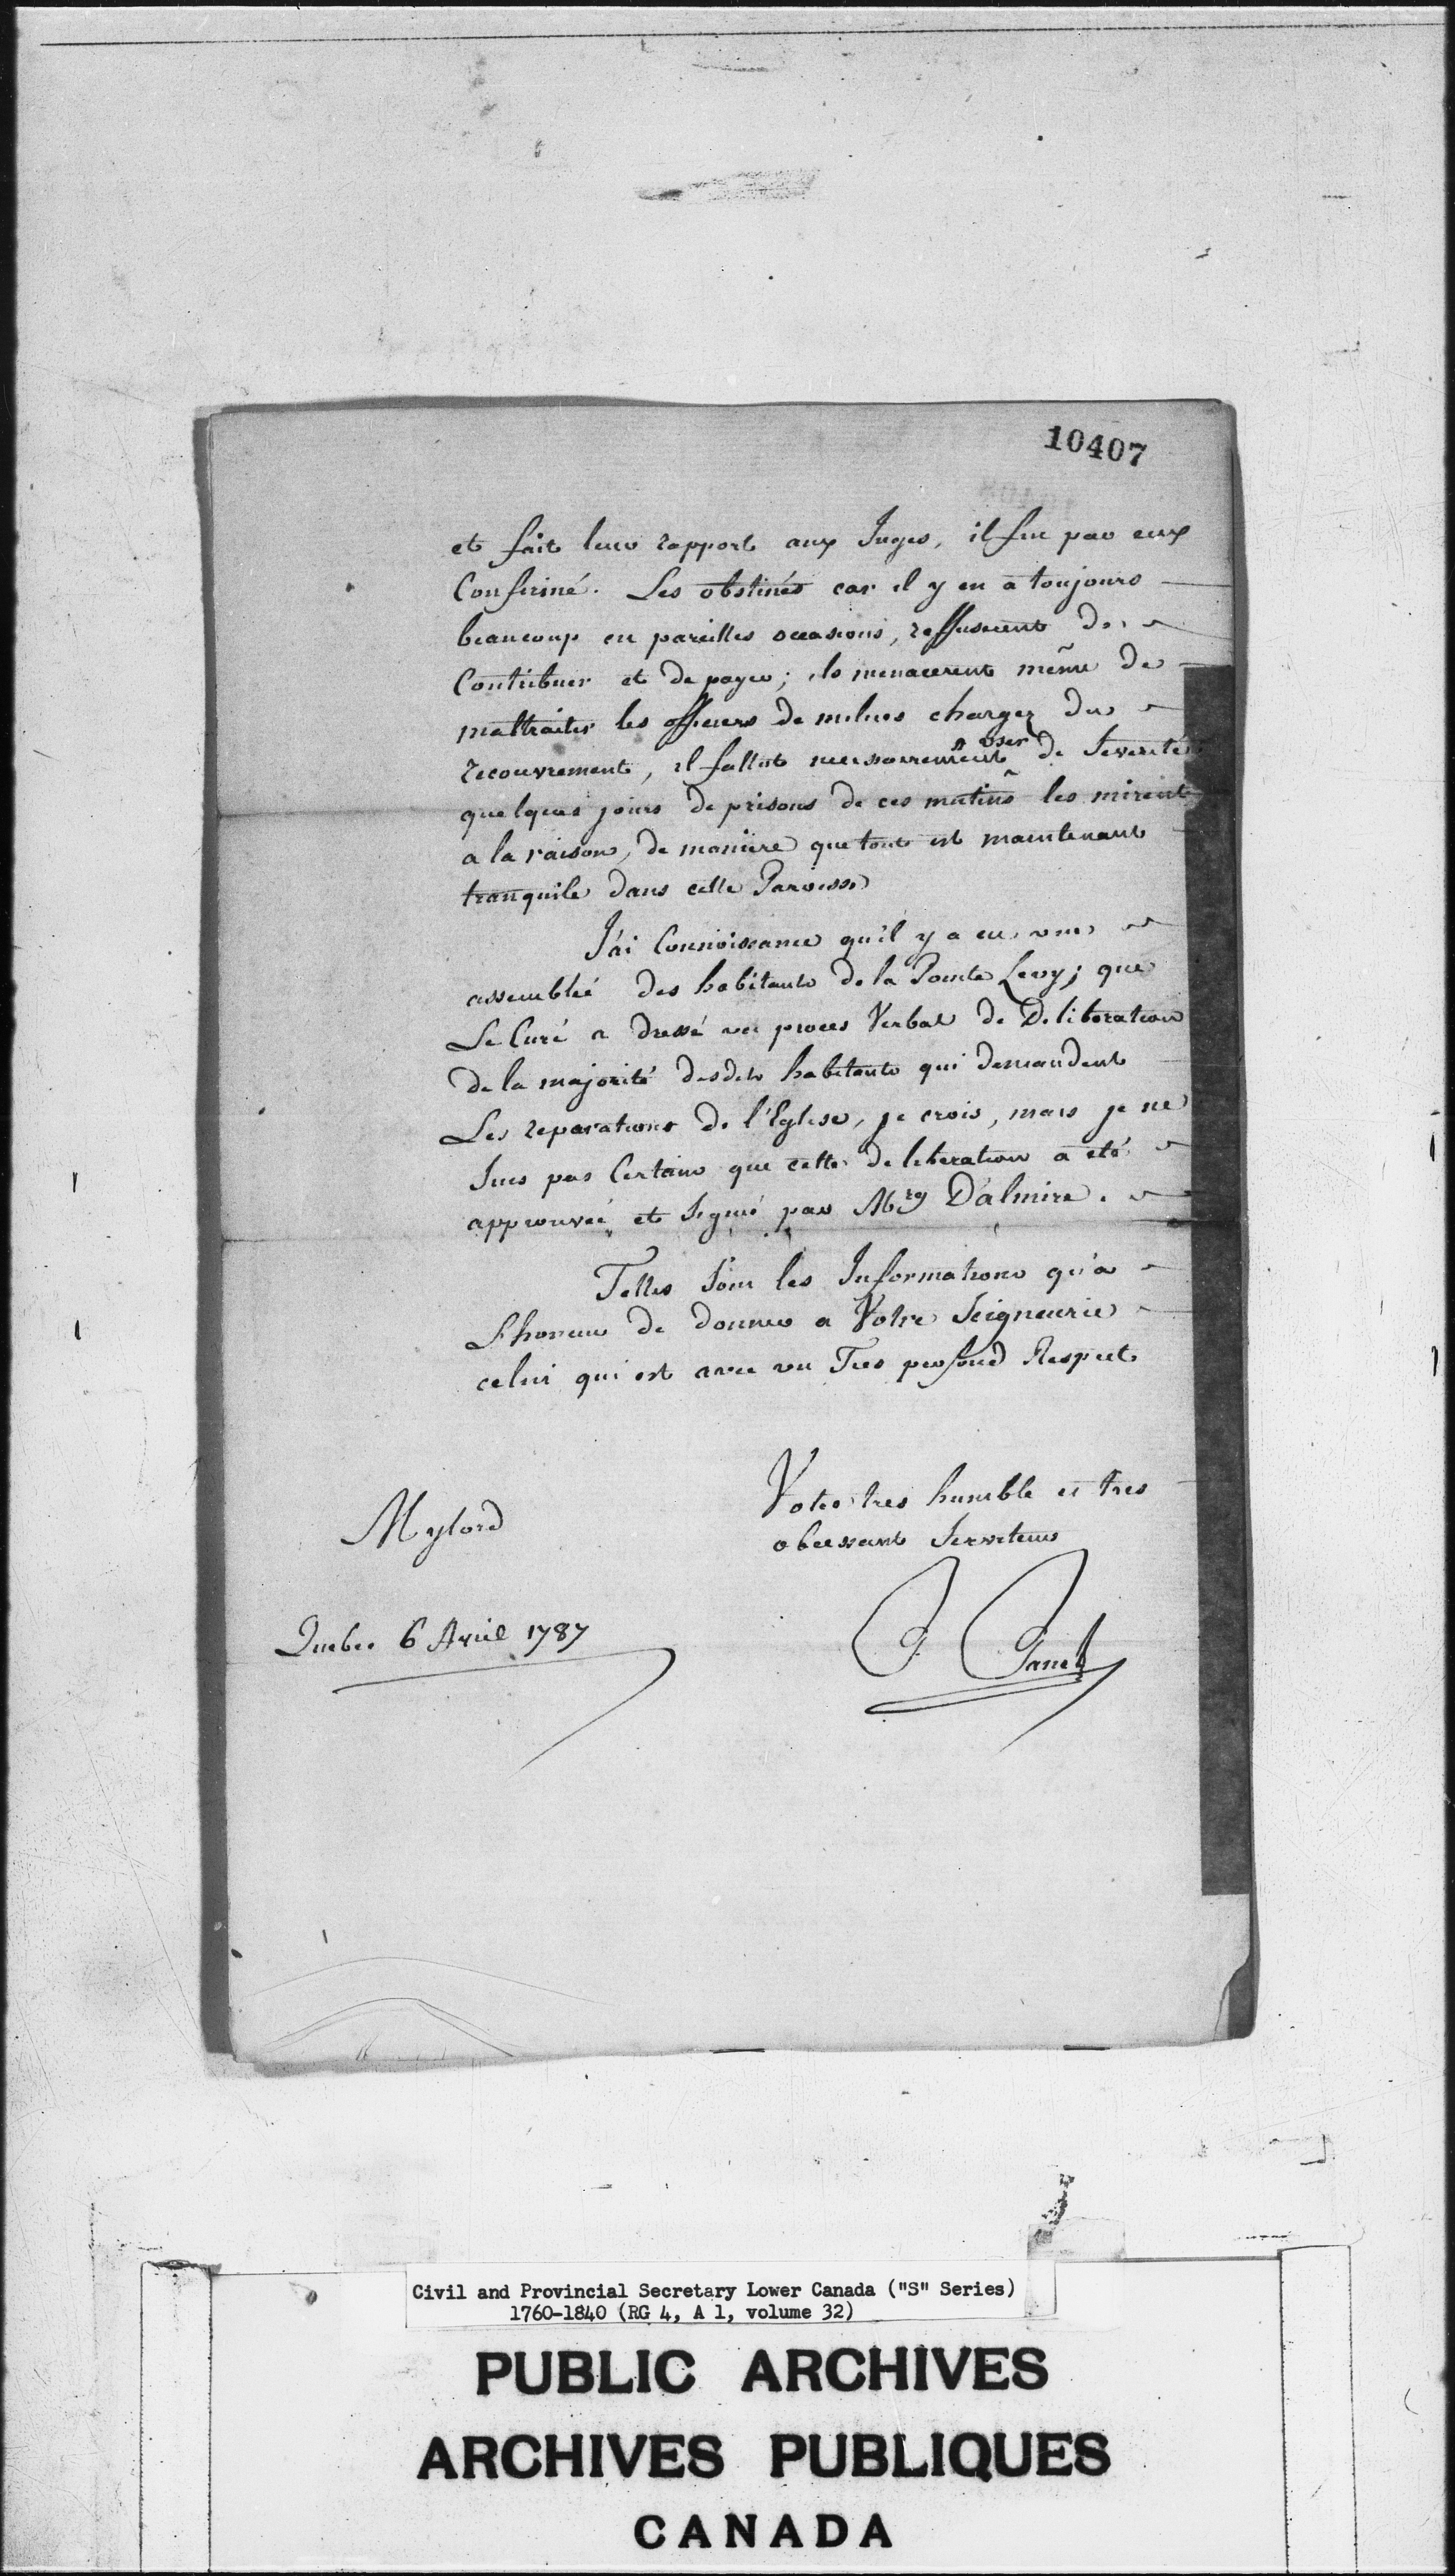 10407
et fait leur rapport aux Juges, il fut par eux
Confirmé. Les obstinés car il y en a toujours
beaucoup en pareilles occasions, reffuserent de
Contribuer et de payer; ils menacerent même de
maltraiter les officiers de milices chargez du
recouvrement, il fallut necessairement user de Severité
quelques jours de prisons de ces mutins les mirent
a la raison, de maniere que tout est maintenant
tranquile dans cette Paroisse
J'ai Connoissance qu'il y a eu une
assemblée des habitants de la Pointe Levy; que
Le Curé a dressé un proces Verbal de Deliberation
de la majorité desdits habitants qui demandent
Les reparations de l'Eglise, je crois, mais je ne
suis pas Certain que cette deliberation a eté
approuvée et signé par Mgr D'almire.
Telles sont les Informations qu'a
L'honneur de donner a Votre Seigneurie
celui qui est avec un Tres profond Respect
Mylord
Votre tres humble et tres
obeissant Serviteur
Quebec 6 Avril 1787
P Panet
Civil and Provincial Secretary Lower Canada ("S" Series)
1760-1840 (RG 4, A 1, volume 32)
PUBLIC ARCHIVES
ARCHIVES PUBLIQUES
CANADA